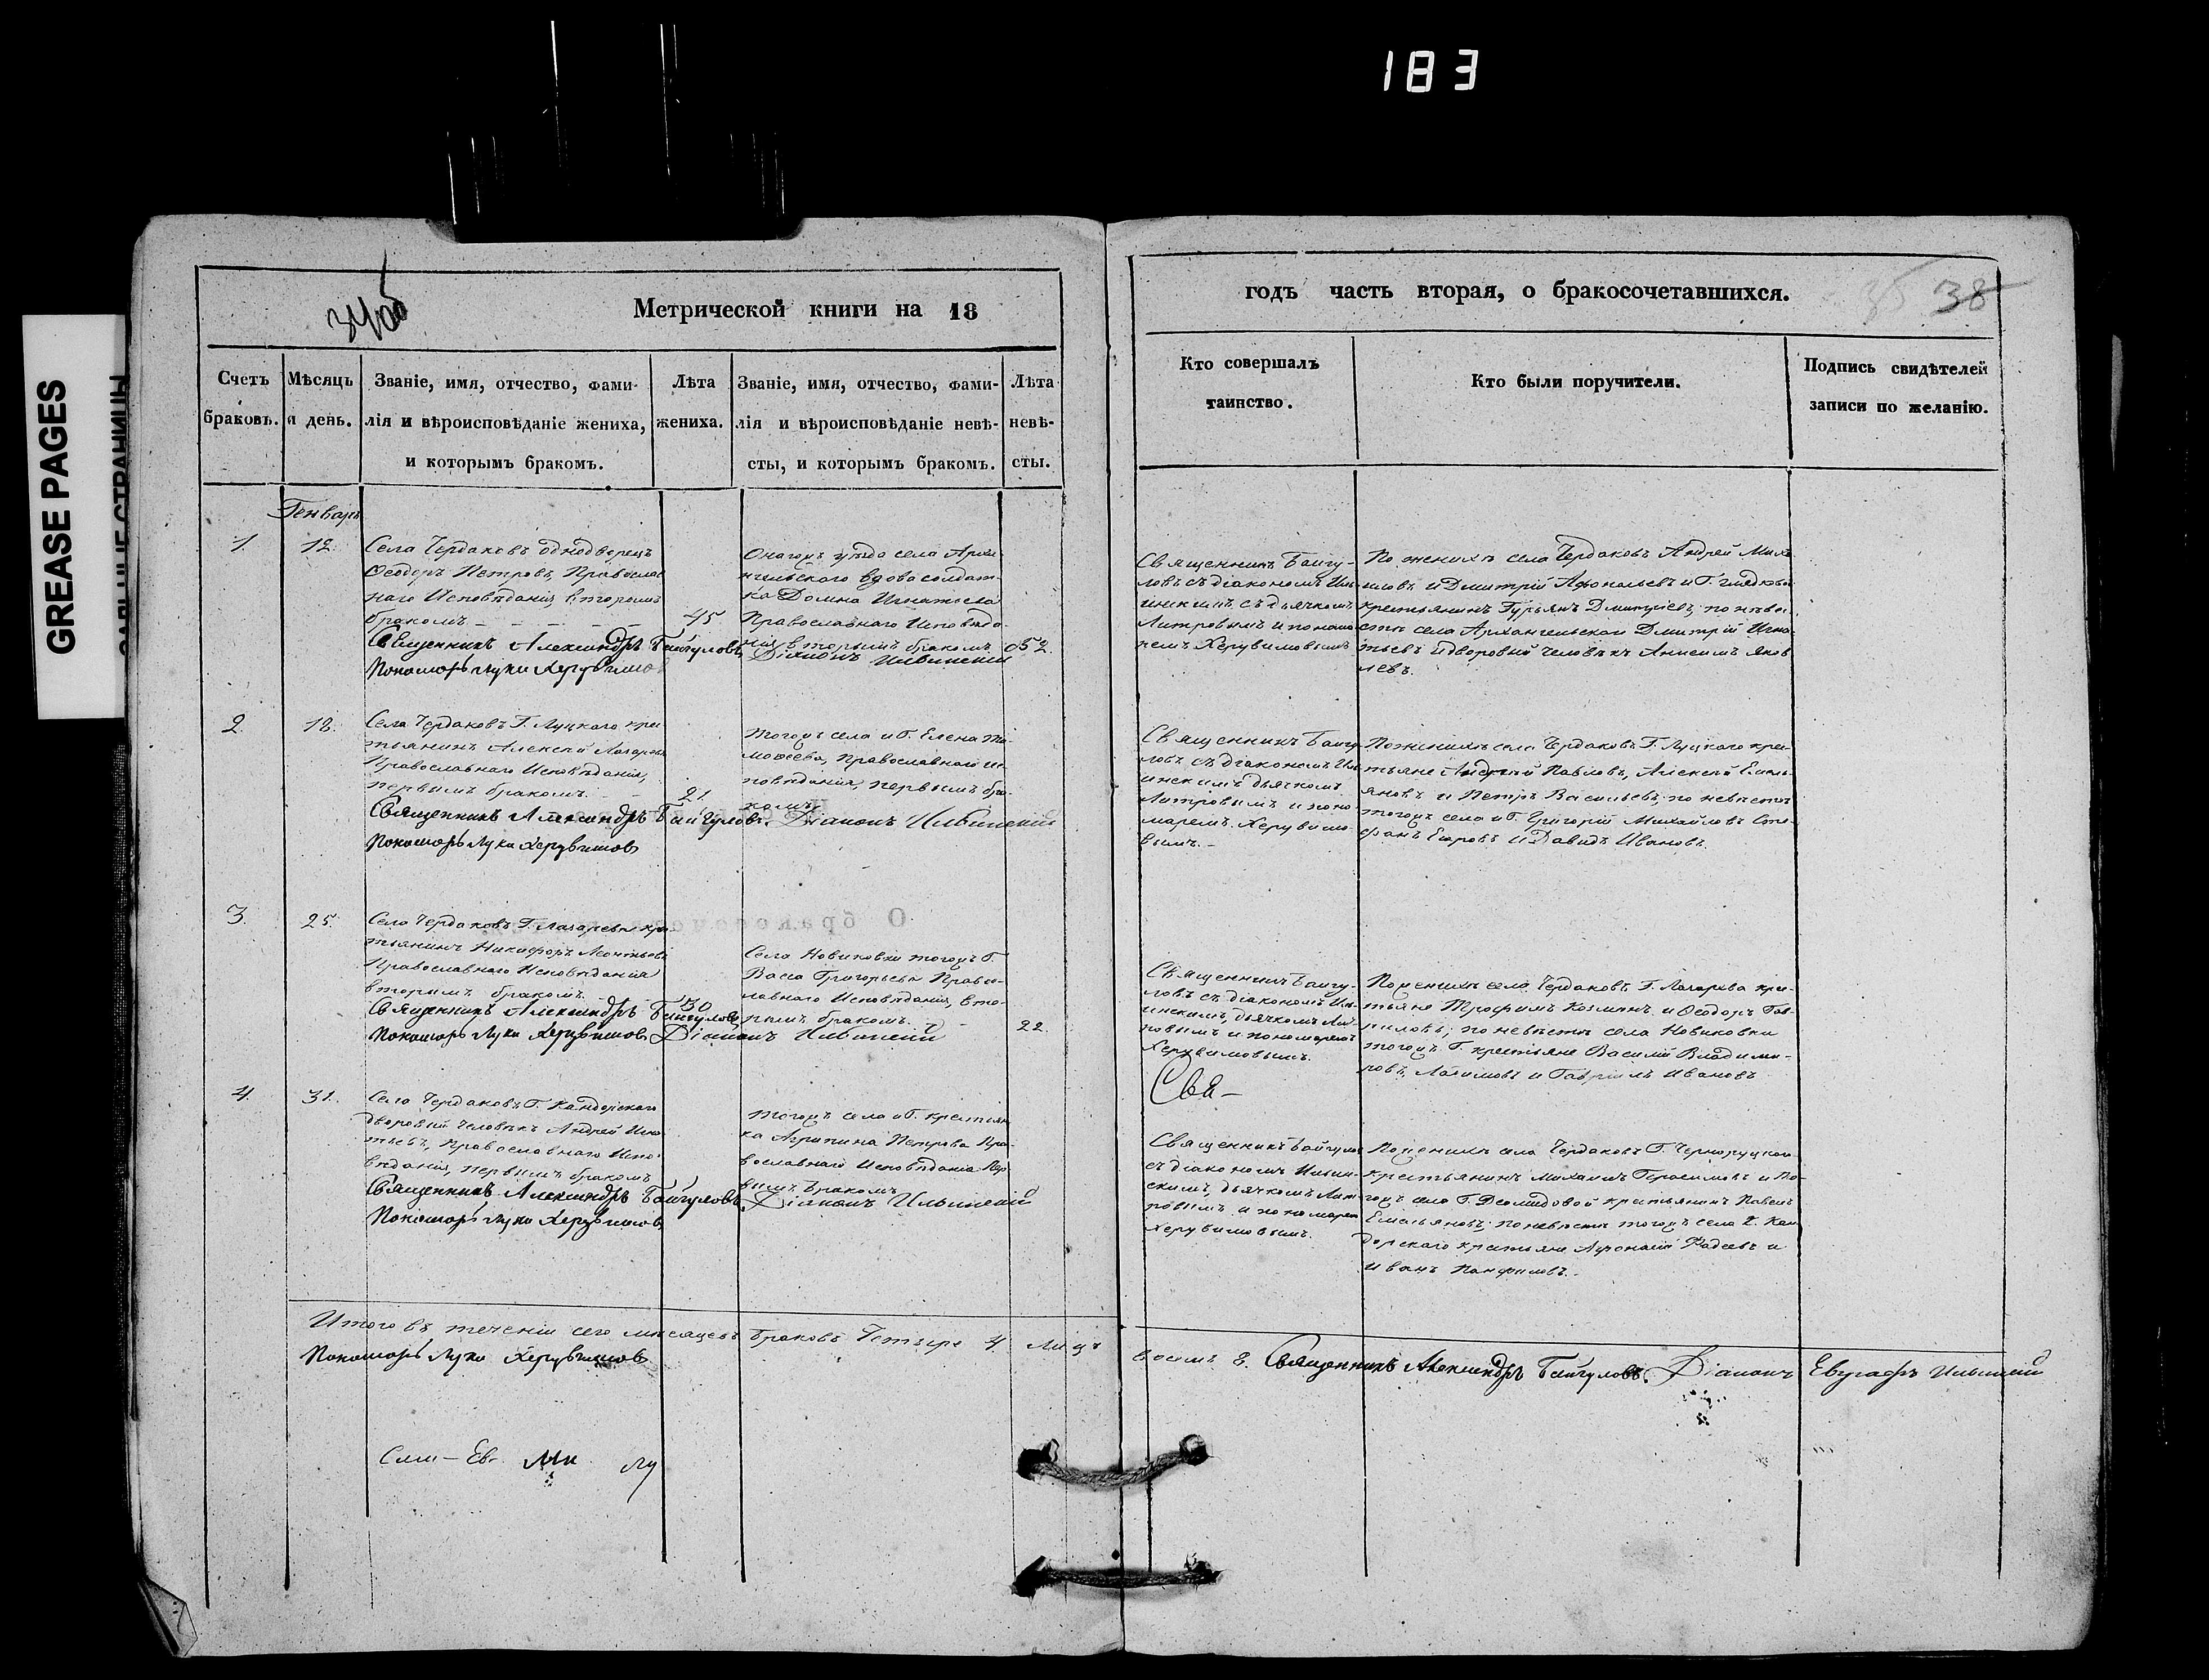 183
GREASE PAGES
САЛЬНЫЕ СТРАНИЦЫ
34об
Метрической книги на 18
годъ часть вторая, о бракосочетавшихся.
38
Счетъ браковъ.
Мѣсяцъ и день.
Званіе, имя, отчество, фами-
лія и вѣроисповѣданіе жениха,
и которымъ бракомъ.
Лѣта
жениха.
Званіе, имя, отчество, фами-
лія и вѣроисповѣданіе невѣ-
сты, и которымъ бракомъ.
Лѣта
невѣ-
сты.
Кто совершалъ
таинство.
Кто были поручители.
Подпись свидѣтелей
записи по желанію.
Генварь
1.
12.
Села Чердаковъ однодворецъ
Ѳеодоръ Петровъ, Православ
наго Исповѣданія, вторымъ
бракомъ
45
Священникъ Александръ Байгуловъ
Пономарь Лука Херувимов
Оногожъ уѣзда села Архан
гельского вдова солдат-
ка Домна Игнатьева
Православнаго Исповѣда-
нія вторымъ бракомъ
52.
Діаконъ Ильинскій
Священникъ Байгу-
ловъ съ діакономъ Иль
инскимъ, съ дьячкомъ
Литровымъ и понома
ремъ Херувимовымъ
По женихѣ села Чердаковъ Андрей Миха
иловъ и Дмитрій Афонасьевъ и Г.
крестьянинъ Гурьянъ Дмитріевъ; по невѣ
стѣ села Архангельскаго Дмитрій Игна
тьевъ и дворовый человѣкъ Анисимъ Яков
левъ.
2.
18.
Села Чердаковъ Г. Луцкаго крес
тьянинъ Алексѣй Лазаревъ
Православнаго Исповѣданія,
первымъ бракомъ.
21.
Священникъ Александръ Байгуловъ.
Пономарь Лука Херувимовъ
Тогожъ села и Г. Елена Ти-
мофеева, Православнаго ис-
повѣданія, первымъ бра-
комъ
Діаконъ Ильинскій
Священникъ Байгу
ловъ съ діакономъ Иль
инскимъ дьячкомъ
Литровымъ и поно-
маремъ Херувимо-
вымъ.
По женихѣ села Чердаковъ Г. Луцкаго крес-
тьяне Андрей Павловъ, Алексѣй Емель-
яновъ и Петръ Васильевъ; по невѣстѣ
тогожъ села и Г. Григорій Михайловъ Сте-
фанъ Егоровъ и Давидъ Ивановъ.
3.
25.
Села Чердаковъ Г. Лазарева кре
тьянинъ Никифоръ Леонтьевъ
Православнаго Исповѣданія
вторымъ бракомъ.
30
Священникъ Александръ Байгуловъ
Пономарь Лука Херувимовъ Діаконъ Ильинскій
Села Новиковки тогожъ Г.
Васса Григорьева Правос-
лавнаго Исповѣданія, вто-
рымъ бракомъ.
22.
Священникъ Байгу-
ловъ съ діакономъ Иль-
инскимъ, дьячкомъ Лит-
ровымъ и пономаремъ
Херувимовымъ.
По женихѣ села Чердаковъ Г. Лазарева кре-
тьяне Трофимъ Козминъ и Ѳеодоръ Гав-
риловъ; по невѣстѣ села Новиковки
тогожъ Г. крестьяне Василій Владими-
ровъ, и Гавріилъ Ивановъ
Свя-
4.
31.
Села Чердаковъ Г. Кандорскаго
дворовый человѣкъ Андрей Игна
тьевъ, Православнаго Испо-
вѣданія, первымъ бракомъ
Священникъ Александръ Байгуловъ.
Пономарь Лука Херувимовъ
Тогожъ села и Г. крестьян
ка Агрипина Петрова Пра-
вославнаго Исповѣданія пер
вымъ бракомъ
Діаконъ Ильинскій
Священникъ Байгулов
съ діакономъ Ильин-
скимъ, дьячкомъ Лит
ровымъ и пономарем
Херувимовымъ.
По женихѣ села Чердаковъ Г. Чернорудскаго
крестьянинъ Михаилъ Герасимовъ и то-
гожъ села Г. Демидовой крестьянинъ Павелъ
Емельяновъ; по невѣстѣ тогожъ села Г. Кан
дорскаго крестьяне Афонасій Фадеевъ и
Иванъ Панфиловъ.
Итого въ теченіи сего мѣсяцевъ браковъ Четыре 4 лицъ восемь 8. Священникъ Александръ Байгуловъ. Діаконъ Евграфъ Ильинскій
Пономарь Лука Херувимовъ